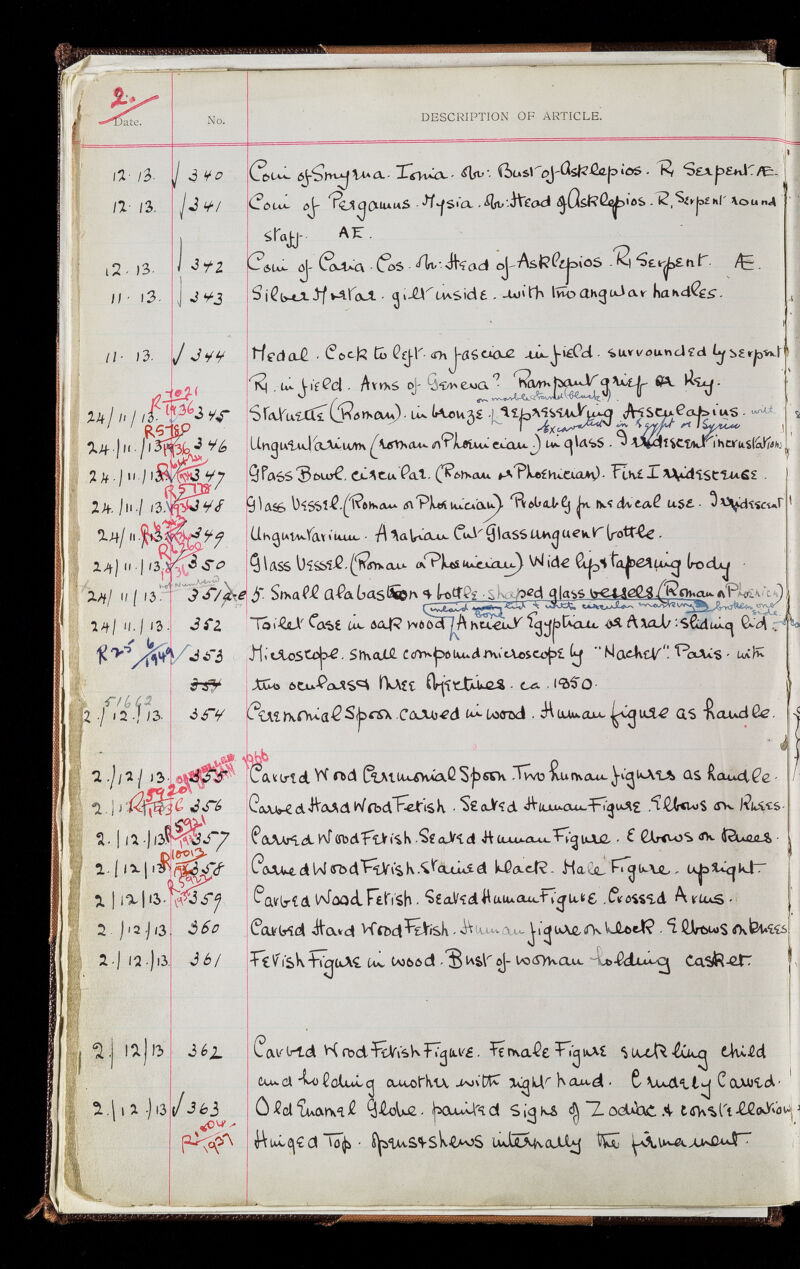 2.
Date. No. DESCRIPTION OF ARTICLE.
12. 13. √ 340 Coin of Smyrna. Ionia. Obv: Bust of Asklepios. R, Serpent. Æ.
12. 13. √ 341 Coin of Pergamus. Mysia. Obv: Head of Asklepios. R, Serpent round
staff. AE.
12. 13. √ 342 Coin of Caria. Cos. Obv: Head of Asklepios. R, Serpent. Æ.
11. 13. √ 343 Silver Mortar. gilt inside. with two angular handles.
11. 13. √ 344 Medal. Cock to left. on fasciae in field. surrounded by serpent
R, in field. Arms of Geneva? Rampant grief or Key.
R 7021 1936 on marble stand (black).
24/11/13. 345 Statuette (Roman). in bronze. representing Aesculapius.
R5780 1936 Excavated in Egypt or Syria
24.11.13 346 Unguentarium (Roman or Phoenician) in glass. Irridiscent incrustations
24./11./13 347 Glass Bowl. circular. (Roman or Phoenician). Fine Irridiscense.
R5778
24./11./13. 348 Glass Vessel. (Roman or Phoenician) Probably for medical use. Irridiscent
24/11. 349 Unguentarium. Arabian Cut Glass unguent bottle.
24/11.13 1936 350 Glass Vessel. (Roman or Phoenician) Wide lips tapering body.
not Numbered
24/11/13. 351 a-e 5. Small alabastron & bottle shaped glass vessels (Roman or Phoenic)
24/11./13. 352 Toilet Case in oak wood / Ancient Egyptian or Arab: sliding lid
1949 √ 353 Microscope. small compound microscope by "Nachet". Paris. with
354 two oculars & three Objectives. ca. 1850.
51662
2./12./13. 354 Ceremonial Spoon. carved in wood. Human figure as handle.
1966
2./12/13. 355 Carved Wood Ceremonial Spoon. Two human figures as handle.
R5920 1936 356 Carved Hard Wood Fetish. Seated Human Figure. Elbows on Knees.
R5921
2./12./13 357 Carved Wood Fetish. Seated Human Figure. Elbows on Knees.
R10013
2./12/13 358 Carved Wood Fetish. Stained black. Male Figure. upright.
2/12/13. 359 Carved Wood Fetish. Seated Human Figure. Crossed Arms.
2./12/13. 360 Carved Hard Wood Fetish. Human figure on block. Elbows on Knees
2./12./13. 361 Fetish Figure in wood. Bust of woman holding casket.
2/12/13 362 Carved Wood Fetish Figure. Female Figure suckling child
and holding another with right hand. Crudely Carved.
2./12./13 √ 363 Old Enamel Globe. painted signs of Zodiac & constellation
1937 Hinged Top. Opens & shews internally the firmament.